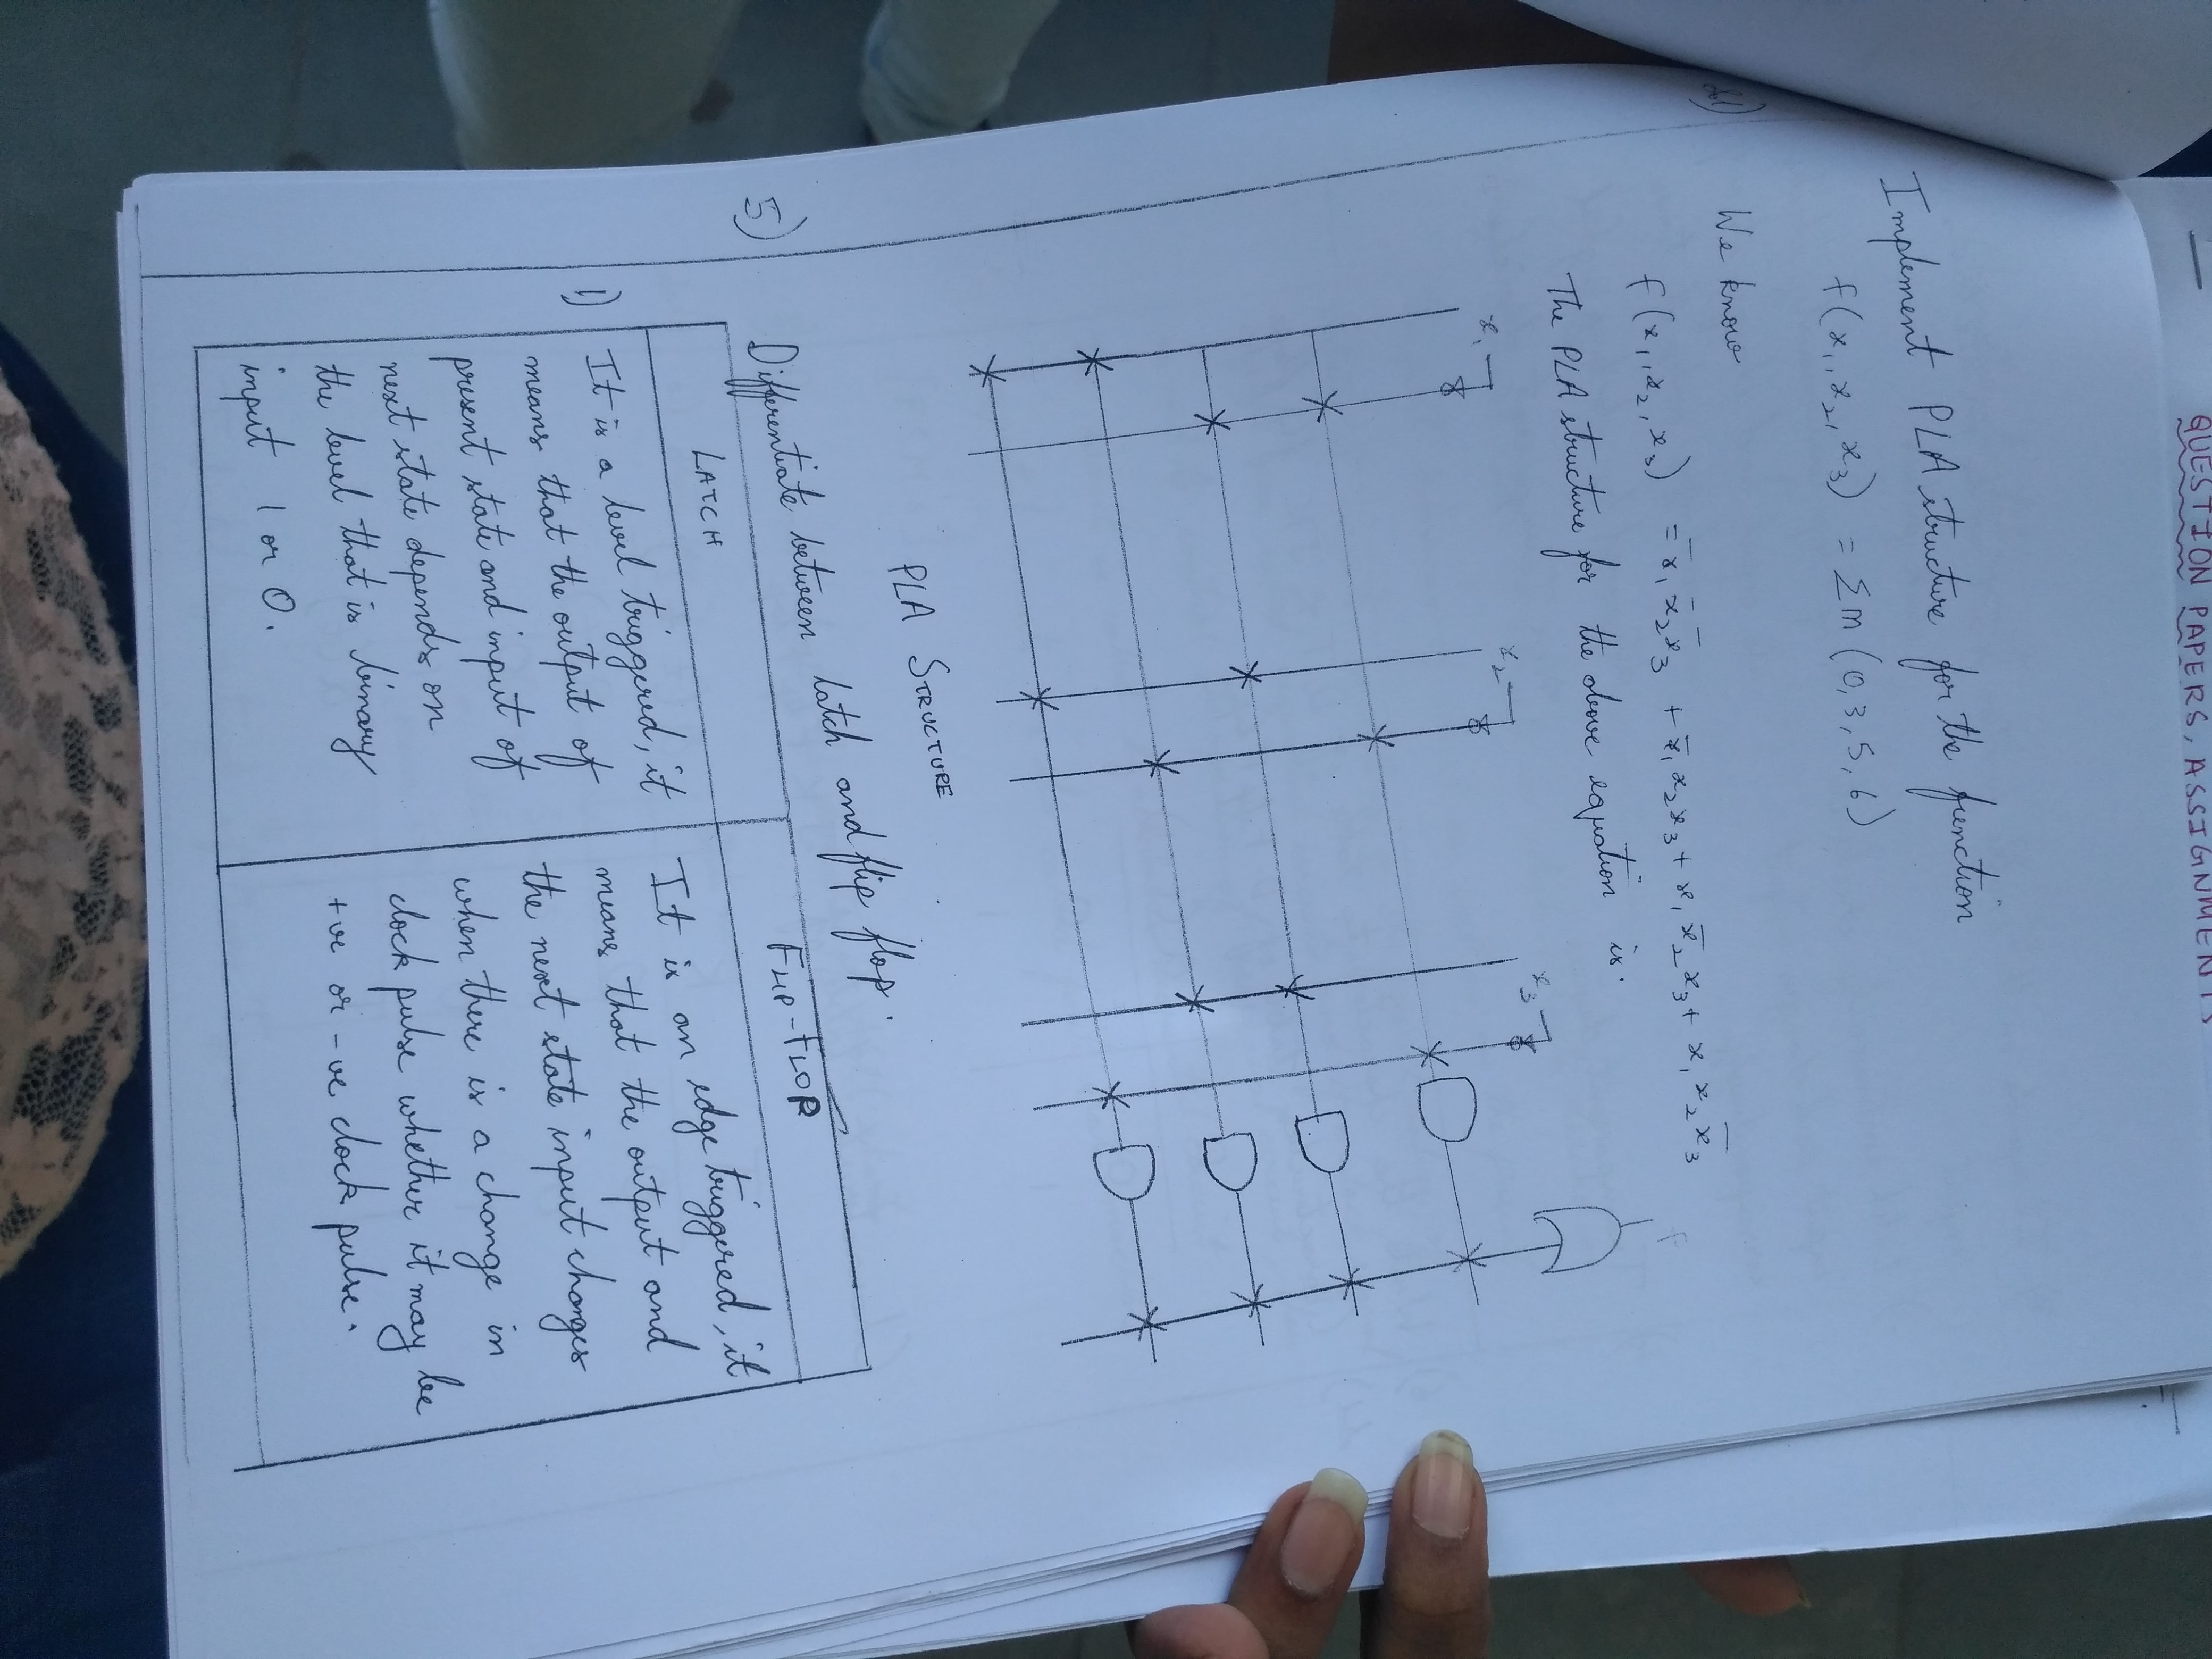 QUESTION PAPERS, ASSIGNMENTS
Implement PLA structure for the function
f(x₁, x₂, x₃) = Σm (0, 3, 5, 6)
We know
f(x₁, x₂, x₃) = x̄₁ x̄₂ x₃ + x̄₁ x₂ x₃ + x₁ x̄₂ x₃ + x₁ x₂ x̄₃
The PLA structure for the above equation is.
x₁ x₂ x₃ f
PLA STRUCTURE
5) Differentiate between latch and flip flop.
LATCH FLIP-FLOP
1) It is a level triggered, it
means that the output of
present state and input of
next state depends on
the level that is binary
input 1 or 0.
It is an edge triggered, it
means that the output and
the next state input changes
when there is a change in
clock pulse whether it may be
+ve or -ve clock pulse.